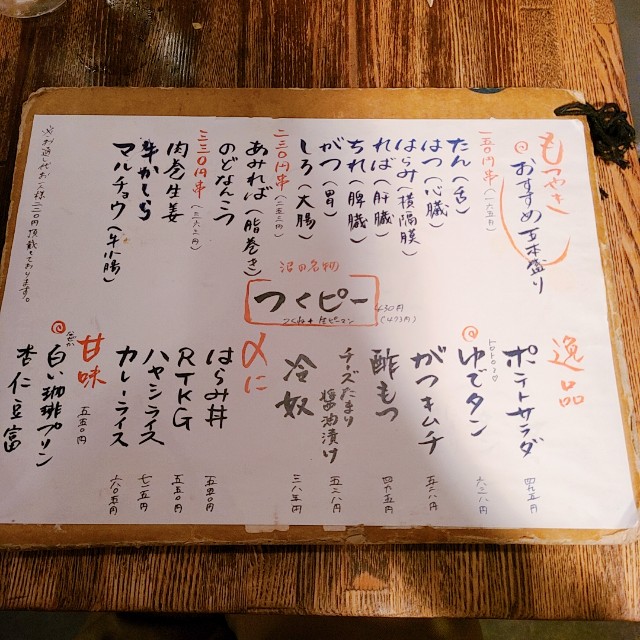 もつやき
@おすすめ五本盛り
一五〇円串(一六五円)
たん(舌)
はつ(心臓)
はらみ(横隔膜)
ればー(肝臓)
ちれ(脾臓)
がつ(胃)
しろ(大腸)
二三〇円串(二五三円)
あみれば(脂巻き)
のどなんこつ
三三〇円串(三六三円)
肉巻生姜
牛かしら
マルチョウ(牛小腸)
※お通しやお一人様二二〇円頂戴しております。
沼の名物
つくピー
つくね+生ピーマン
430円
(473円)
逸品
ポテトサラダ
四九五円
@ゆでタン
トロトロ♡
六二八円
がつキムチ
五二八円
酢もつ
四九五円
チーズたまり醤油漬け
五二八円
冷奴
三八五円
〆に
はらみ丼
五五〇円
RTKG
五五〇円
ハヤシライス
七一五円
カレーライス
六〇五円
甘味
五五〇円
@白い珈琲プリン
杏仁豆富